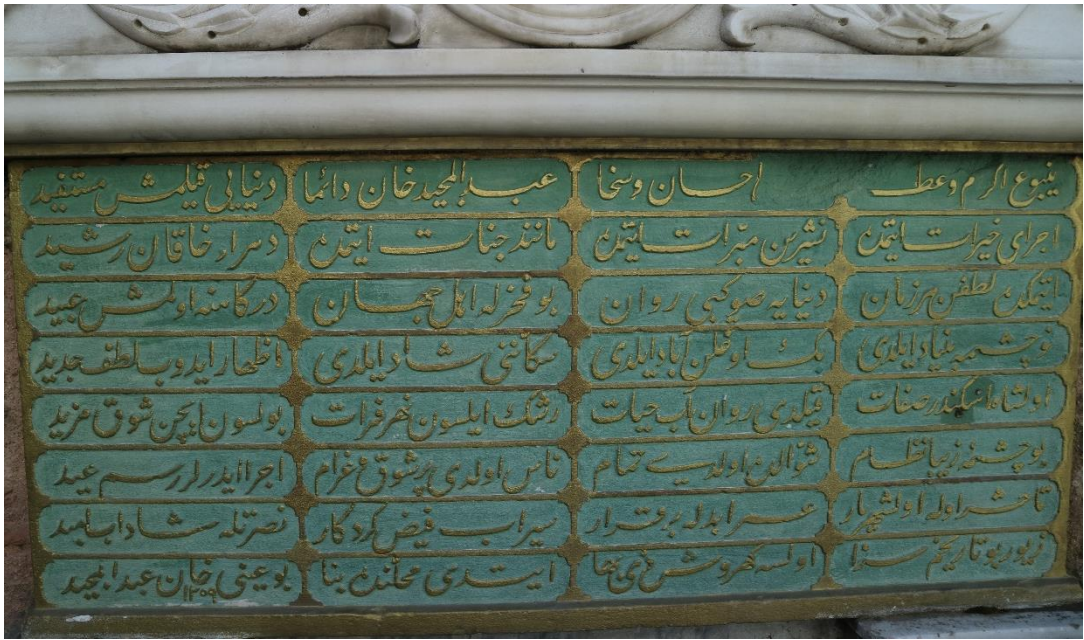 ینبوع اکرم وعطا احسان وسخا عبدالمجید خان دائما دنیایی قیلمش مستفید
اجرای خیرات ایتمده نشرین مبرات ایتمده مانند جنات ایتمده خاقان رشید
ایتمکده لطفن هر زمان دنیایه صو کبی روان بو فخرله اهل جهان درکاهنه اولمش عبید
نو چشمه بنیاد ایلدی بک اوغلن آباد ایلدی سکاننی شاد ایلدی اظهار ایدوب لطف جدید
اولشاه اسکندر صفات قیلدی روان آب حیات رشک ایلسون نهر فرات بولسون ایچن شوق مزید
بو چشمه زیبا نظام شوالده اولدی تمام ناس اولدی پر شوق و غرام اجرا ایدرلر رسم عید
تا حشر اوله اولشهریار عمر ابدله برقرار سیراب فیض کردکار نصرتله شاداب امید
زیور بو تاریخم سزا اولسه کهروش ذی بها ایتدی محلنده بنا بو عینی خان عبدالمجید